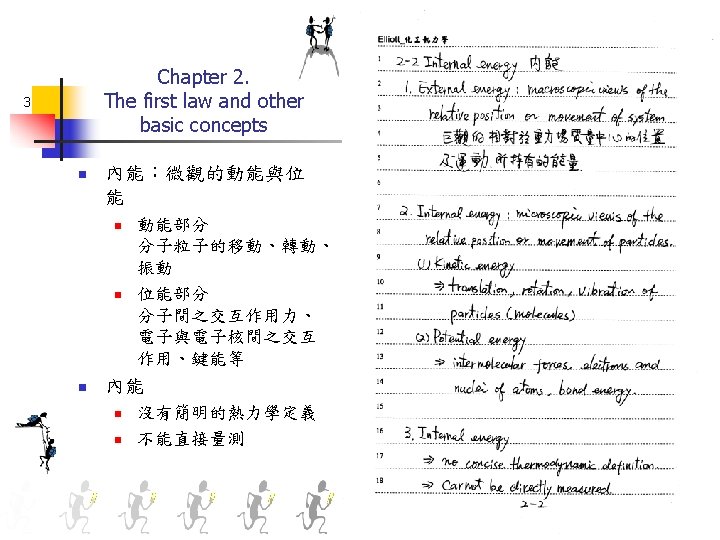 3
Chapter 2.
The first law and other
basic concepts
內能：微觀的動能與位
能
動能部分
分子粒子的移動、轉動、
振動
位能部分
分子間之交互作用力、
電子與電子核間之交互
作用、鍵能等
內能
沒有簡明的熱力學定義
不能直接量測
Elliott_化工熱力學
1 2-2 Internal energy 內能
2 1. External energy : macroscopic views of the
3 relative position or movement of system
4 巨觀的相對於重力場質量中心的位置
5 及運動所持有的能量
6
7 2. Internal energy : microscopic views of the
8 relative position or movement of particles.
9 (1) Kinetic energy
10 ⇒ translation, rotation, vibration of
11 particles (molecules)
12 (2) Potential energy
13 ⇒ intermolecular forces, electrons and
14 nuclei of atoms, bond energy
15
16 3. Internal energy
17 ⇒ no concise thermodynamic definition
18 ⇒ Cannot be directly measured
2-2